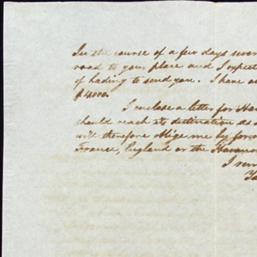 In the course of a few days
road to your place and I expect
of hading to send you. I have
$4000.
I enclose a letter for
should reach its destination as
will therefore oblige me by
France, England or the
I